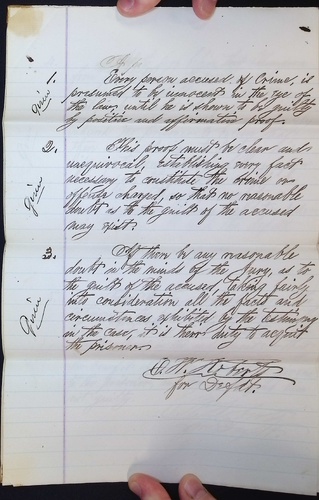 1. Every person accused of Crime, is
presumed to be innocent in the eye of
the law, until he is shown to be guilty
by positive and affirmative proof.
Given
2. This proof must be clear and
unequivocal, establishing every fact
necessary to constitute the crime or
offense charged, so that no reasonable
doubt as to the guilt of the accused
may exist.
Given
3. If there be any reasonable
doubt in the minds of the Jury, as to
the guilt of the accused, taking fairly
into consideration all the facts and
circumstances exhibited by the testimony
in the case, it is their duty to acquit
the prisoner.
Given
for Defdt.